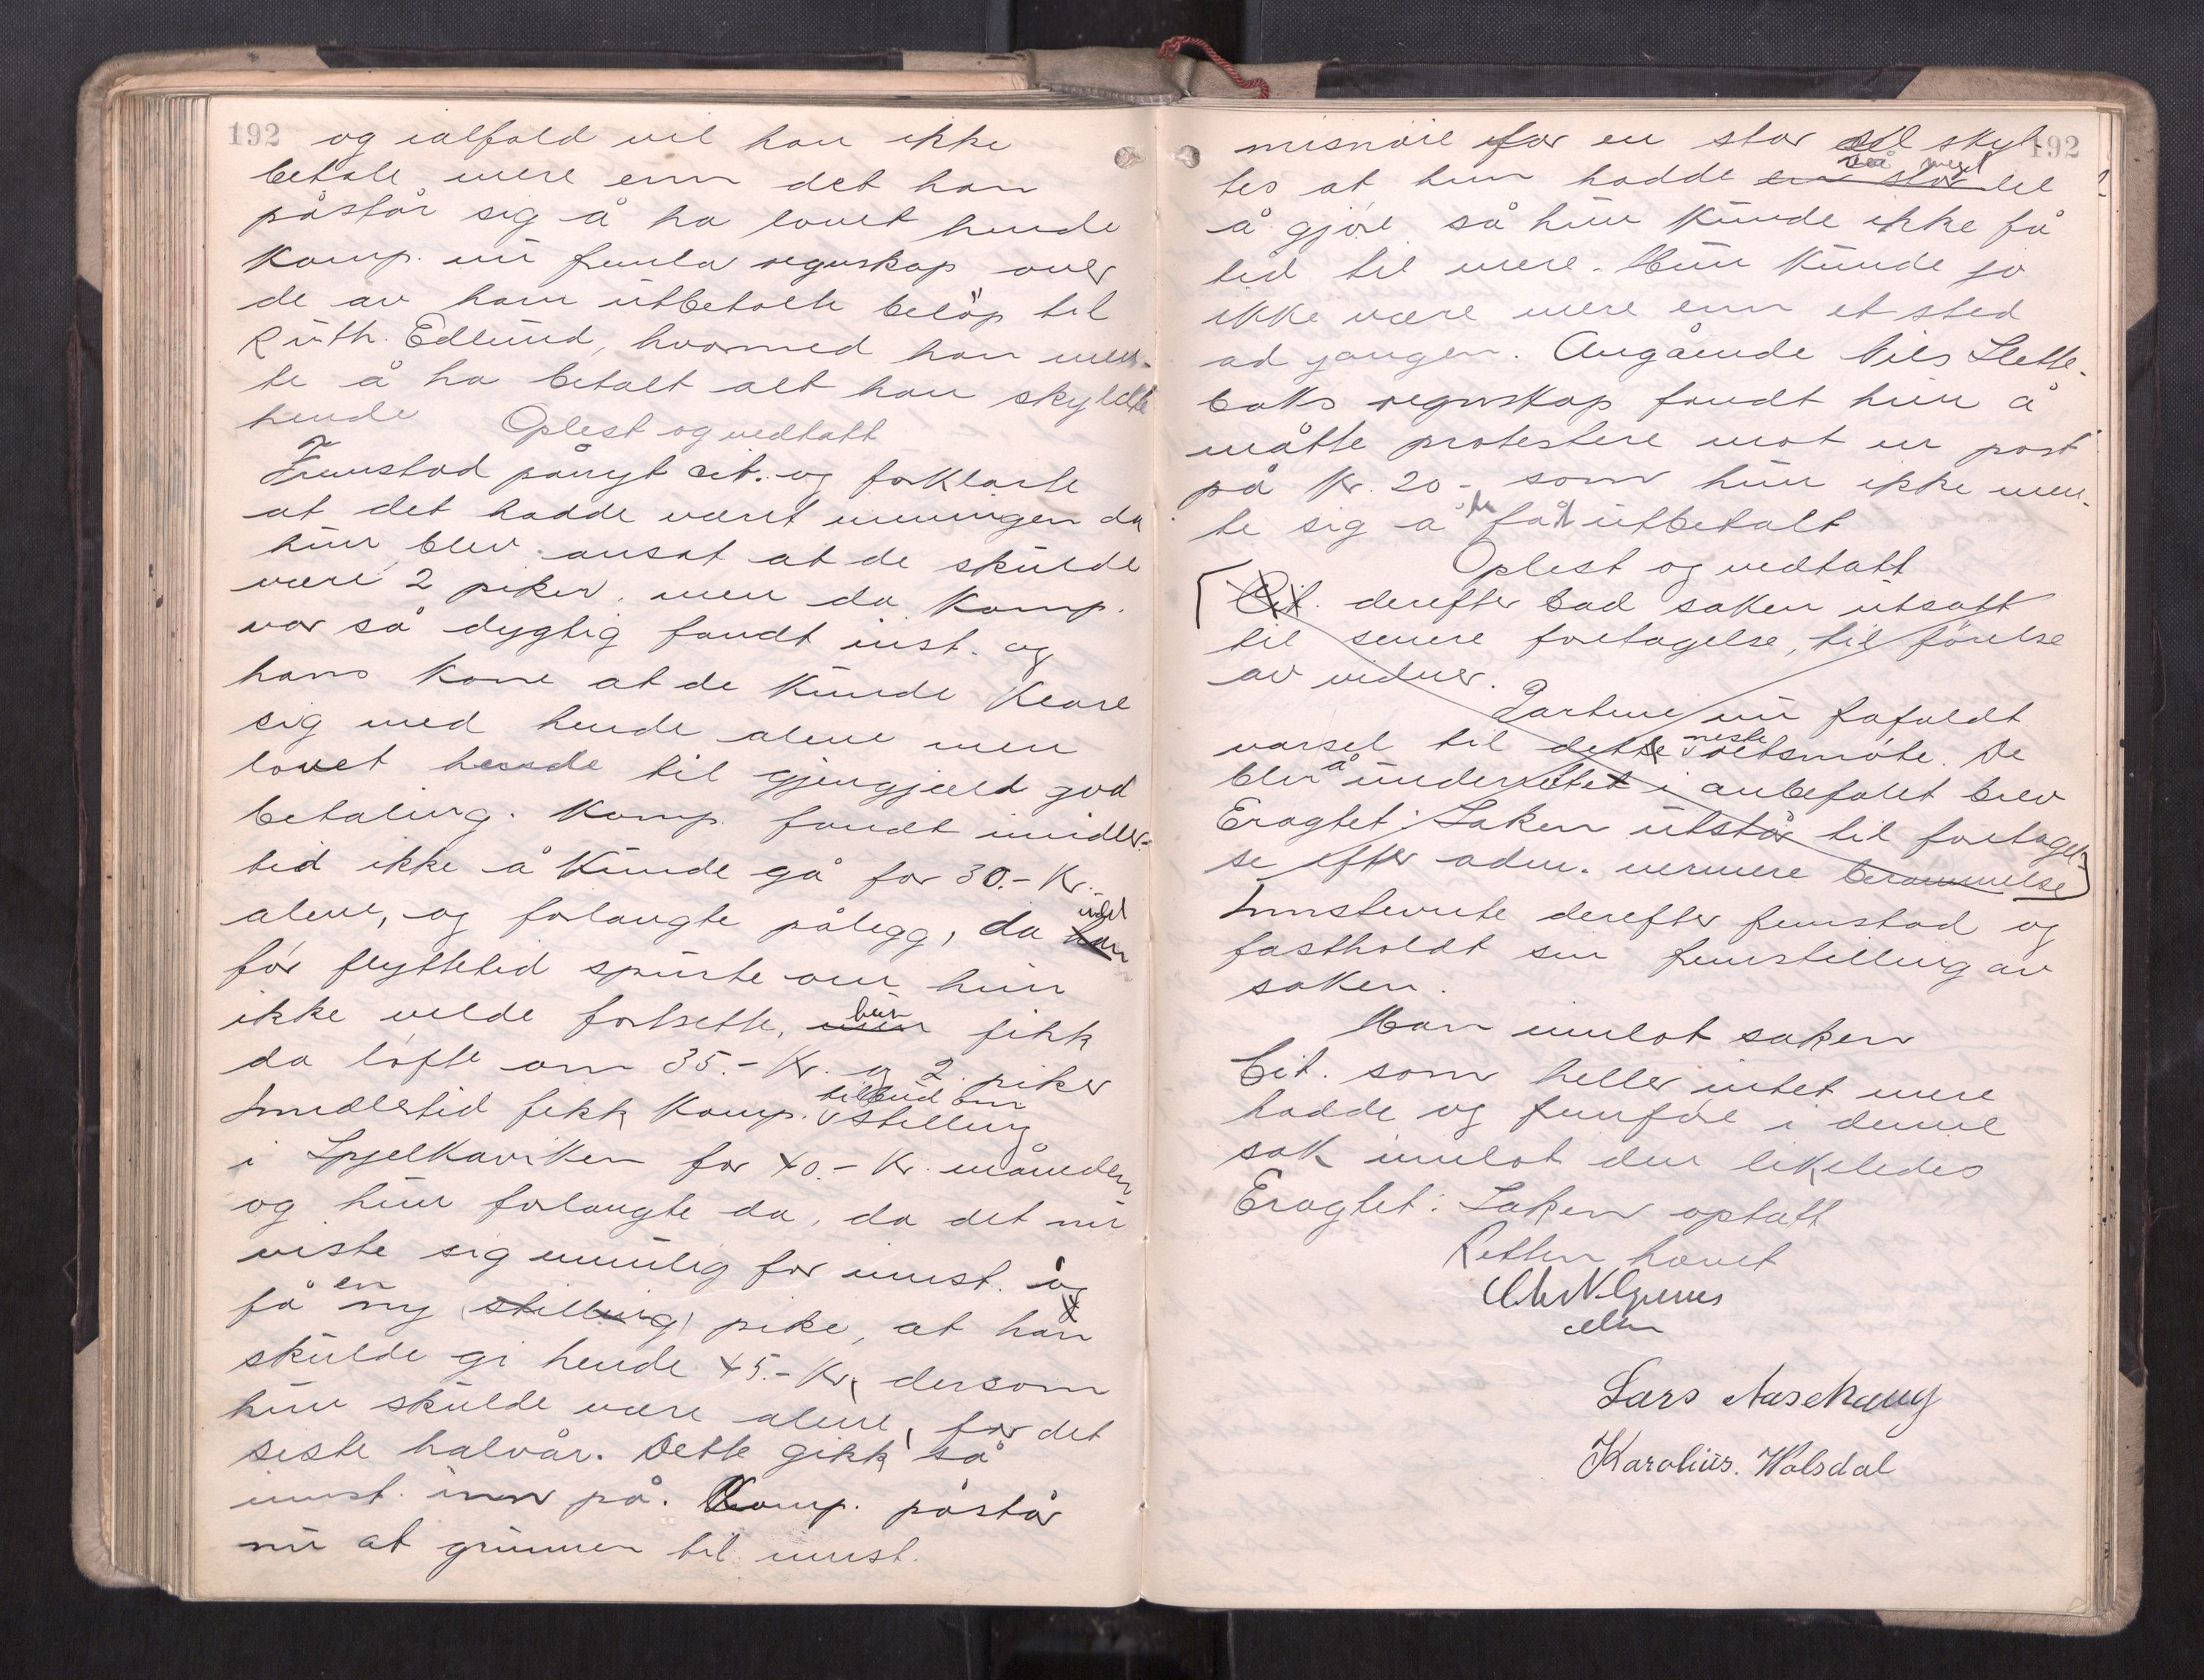 192 og ialfald vil han ikke
betale mere enn det han
påstår sig å ha lovet hende
Komp. nu fremla regnskap over
de av ham utbetalte beløp til
Ruth. Edlund, hvormed han men-
te å ha betalt alt han skyldte
hende Oplest og vedtatt
Fremstod pånyt cit. og forklarte
at det hadde været meningen da
hun blev ansat at de skulde
være 2 piker. men da Komp.
var så dygtig fandt inst. og
hans kone at de kunde klare
sig med hende alene men
lovet hende til gjengjæld god
betaling. Komp. fandt imidler-
tid ikke å kunde gå for 30.- Kr.
alene, og forlangte pålegg, da
før flyttetid spurte om hun
ikke vilde fortsette, hun fikk
da løfte om 35.- Kr. og 2 piker
Imidlertid fikk Komp. tilbud om stilling
i Spjelkaviken for 40.- Kr. måneden
og hun forlangte da, da det nu
viste sig umulig for innst. å
få en ny (stilling) pike, at han
skulde gi hende 45.- Kr. dersom
hun skulde være alene, for det
siste halvår. Dette gikk så
innst. inn på. Komp. påstår
nu at grunnen til innst.
192
misnøie for en stor del skyl-
tes at hun hadde en stor del
så meget
å gjøre så hun kunde ikke få
tid til mere. Hun kunde jo
ikke være mere enn et sted
ad gangen. Angående Nils Slette-
baks regnskap fandt hun å
måtte protestere mot en post
på Kr. 20.- som hun ikke men-
te sig å ha fåt utbetalt
Oplest og vedtatt
Cit. derefter bad saken utsatt
til senere foretagelse, til førelse
av vidner.
Partene nu fafaldt
varsel til dette neste retsmøte. De
blir å underrettet i anbefalet brev
Eragtet: Saken utstår til foretagel-
se efter adm. nermere berammelse
Innstevnte derefter fremstod og
fastholdt sin fremstilling av
saken.
Han innlot saken
Cit. som heller intet mere
hadde og fremføre i denne
sak innlot den likeledes
Eragtet: Saken optatt
Retten hævet
Lars Aaseskaug
Karolius. Walsdal